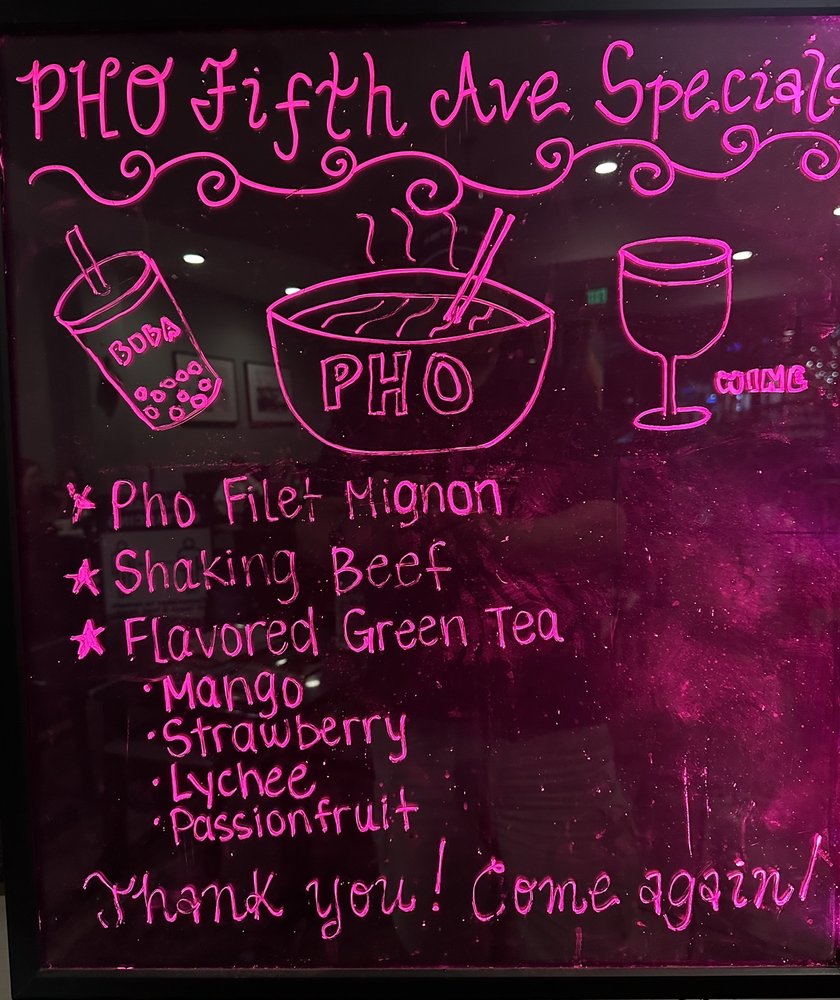 PHO Fifth Ave Specials
BOBA
PHO
WINE
Pho Filet Mignon
Shaking Beef
Flavored Green Tea
Mango
Strawberry
Lychee
Passionfruit
Thank you! Come again!